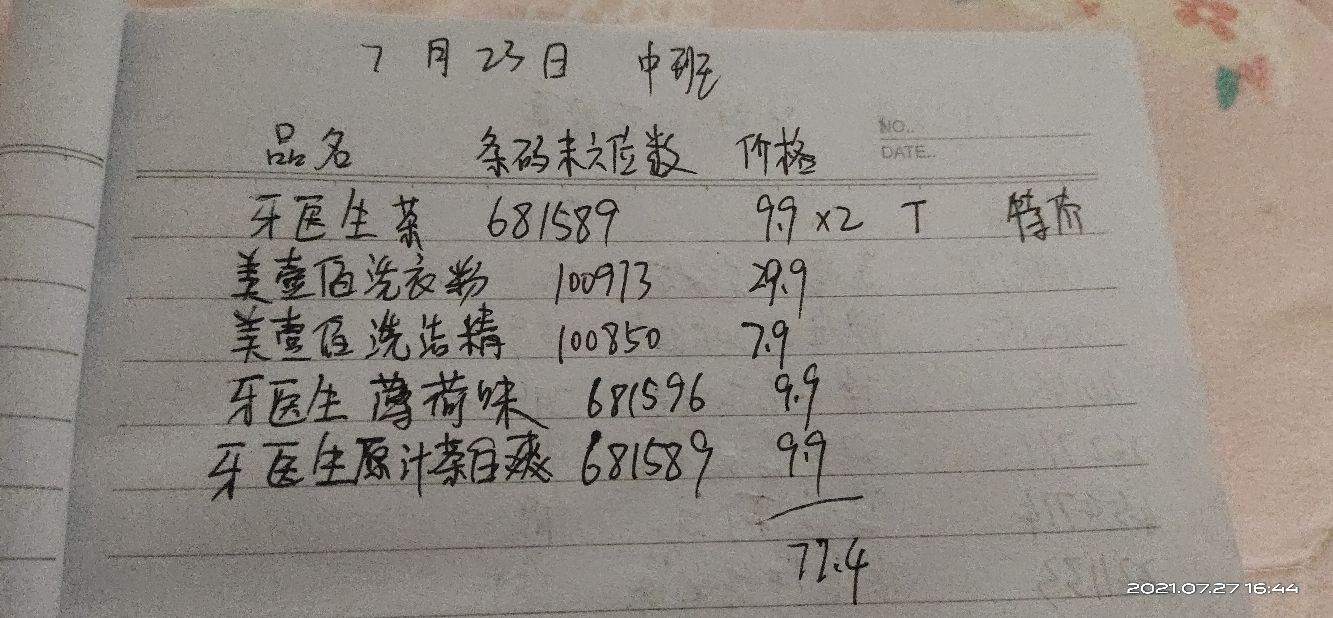 7月23日 中班
NO..
DATE..
品名 条码末六位数 价格
牙医生茶 681589 9.9×2 T 特价
美壹佰洗衣粉 100973 29.9
美壹佰洗洁精 100850 7.9
牙医生薄荷味 681596 9.9
牙医生原汁茶目爽 681589 9.9
77.4
2021.07.27 16:44